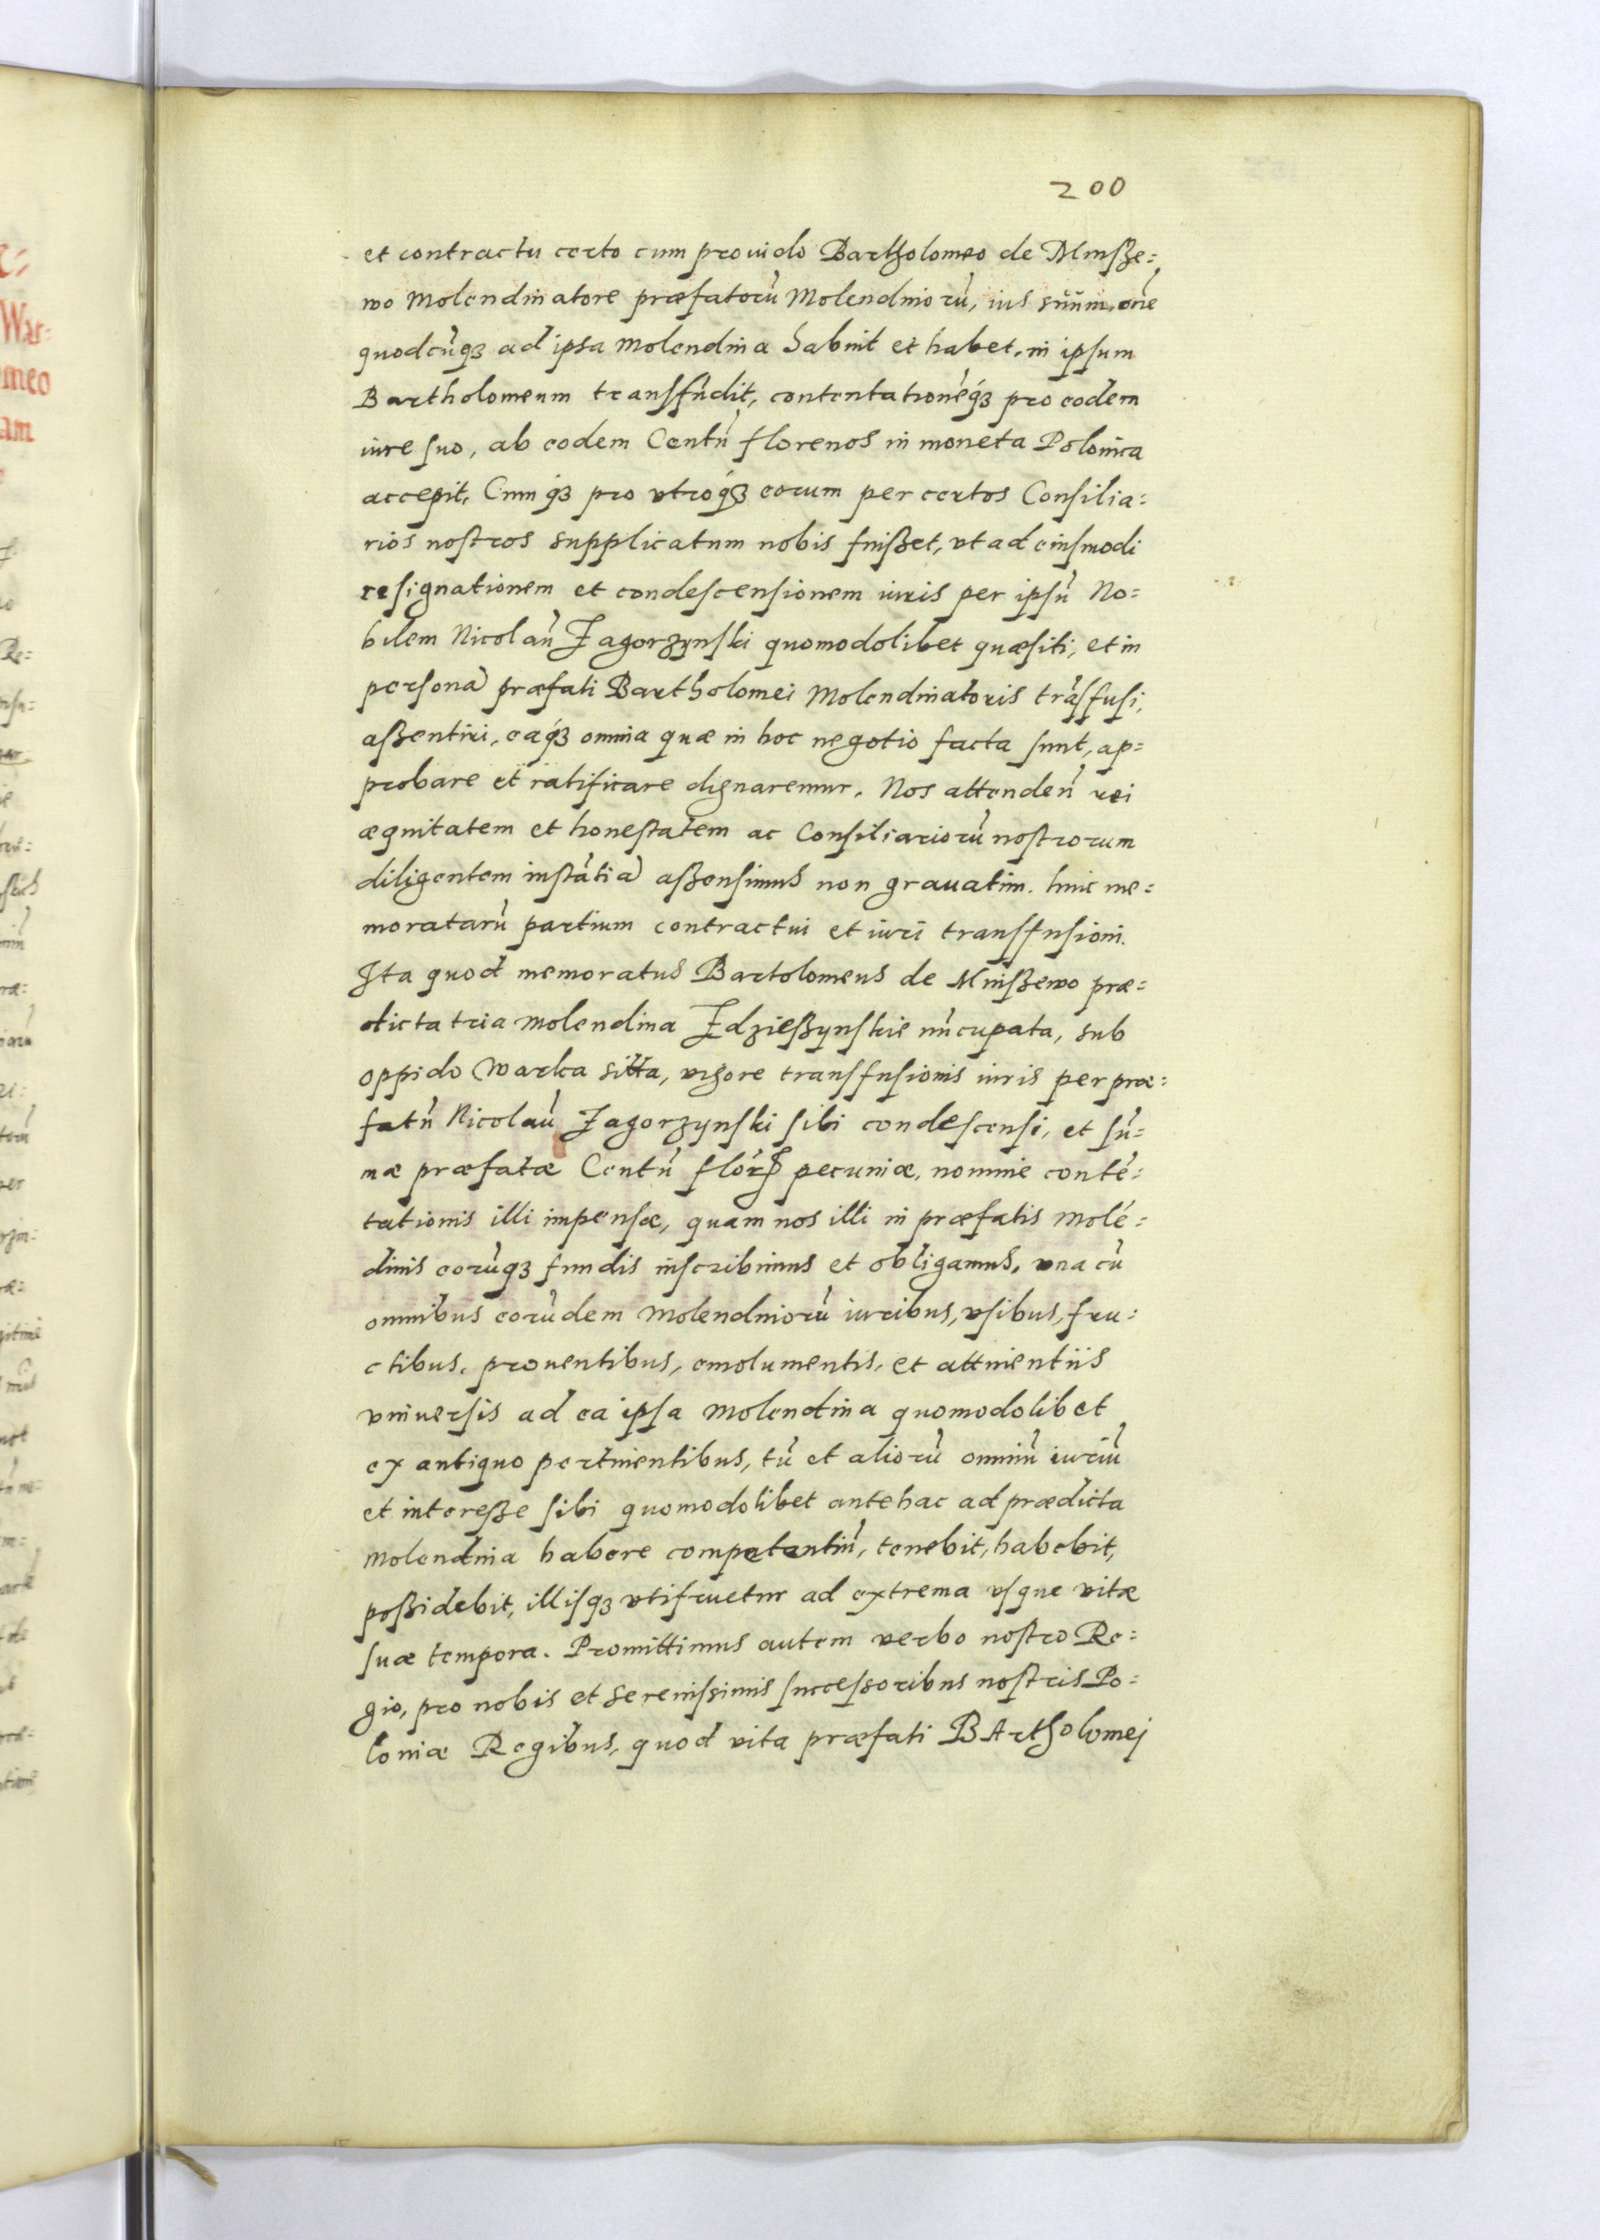 200
et contractu certo cum prouido Bartholomeo de Mnisze=
wo Molendinatore præfatorũ Molendinorũ, ius suum, om̃e
quodcũq3 ad ipsa Molendina habuit et habet, in ipsum
Bartholomeum transfũdit, contentationẽq3 pro eodem
iure suo, ab eodem Centũ florenos in moneta Polonica
accepit, Cumq3 pro vtroq3 eorum per certos Consilia=
rios nostros supplicatum nobis fuisset, vt ad eiusmodi
resignationem et condescensionem iuris per ipsũ No=
bilem Nicolaũ Zagorzynski quomodolibet quæsiti, et in
personã præfati Bartholomei Molendinatoris trãsfusi,
assentiri, eaq3 omnia quæ in hoc negotio facta sunt, ap=
probare et ratificare dignaremur. Nos attendeñ rei
æquitatem et honestatem ac Consiliariorũ nostrorum
diligentem instãtiã assensimus non grauatim. huic me=
moratarũ partium contractui et iuri transfusioni.
Ita quod memoratus Bartolomeus de Mniszewo præ=
dicta tria Molendina Zdzieszynskie nũcupata, sub
oppido Warka sitta, vigore transfusionis iuris per præ=
fatũ Nicolaũ Zagorzynski sibi condescensi, et sũ=
mæ præfatæ Centũ flor pecuniæ, nomine contẽ=
tationis illi impensæ, quam nos illi in præfatis Molẽ=
dinis eorũq3 fundis inscribimus et obligamus, vna cũ
omnibus eorũdem Molendinorũ iuribus, vsibus, fru=
ctibus, prouentibus, emolumentis, et attinentiis
vniuersis ad ea ipsa Molendina quomodolibet
ex antiquo pertinentibus, tũ et aliorũ omniũ iuriũ
et interesse sibi quomodolibet antehac ad prædicta
Molendina habere competentiũ, tenebit, habebit,
possidebit, illisq3 vtifruetur ad extrema vsque vitæ
suæ tempora. Promittimus autem verbo nostro Re=
gio, pro nobis et Serenissimis successoribus nostris Po=
loniæ Regibus, quod vita præfati BArtholomej